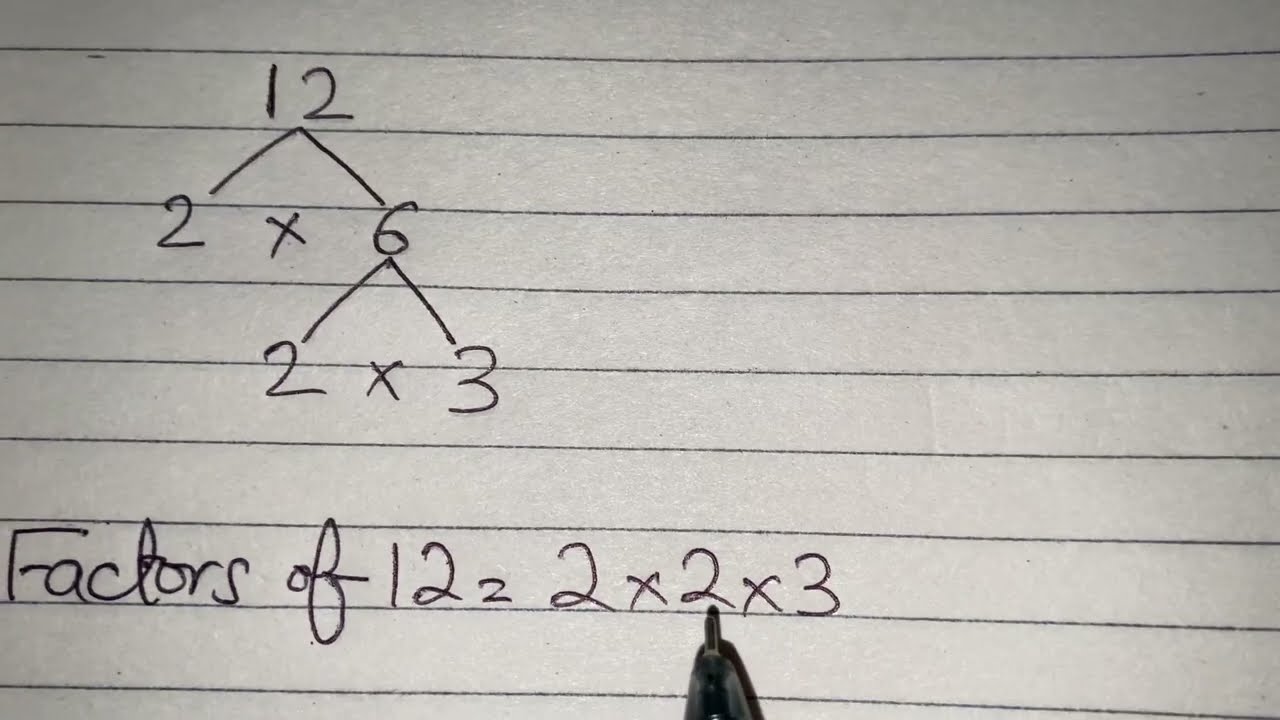 12
2 x 6
2 x 3
Factors of 12 = 2 x 2 x 3